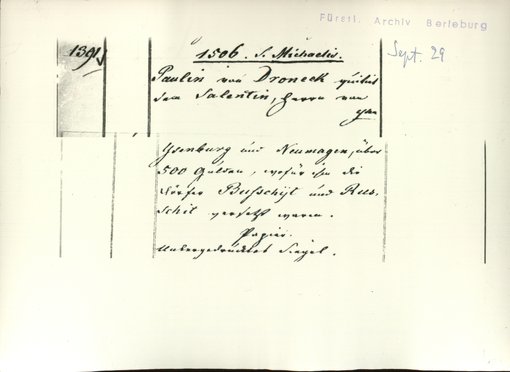 Fürstl. Archiv Berleburg
Sept. 29
1506. S. Michaelis.
Paulin von Droneck quitirt
dem Salentin, Herrn von
Ysenburg und Neumagen, über
500 Gulden, wofür ihm die
Dörfer Busschijt und
schit versetzt waren.
Papier.
Untergedrücktes Siegel.